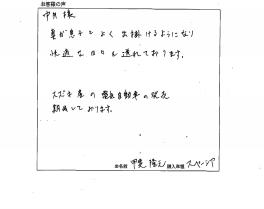 お客様の声
中井 様
妻が息子とよく出掛けるようになり
快適な日々を送れております。
スズキ産の電気自動車の発売
期待しております。
お名前 甲斐 隆元 購入車種 スペーシア